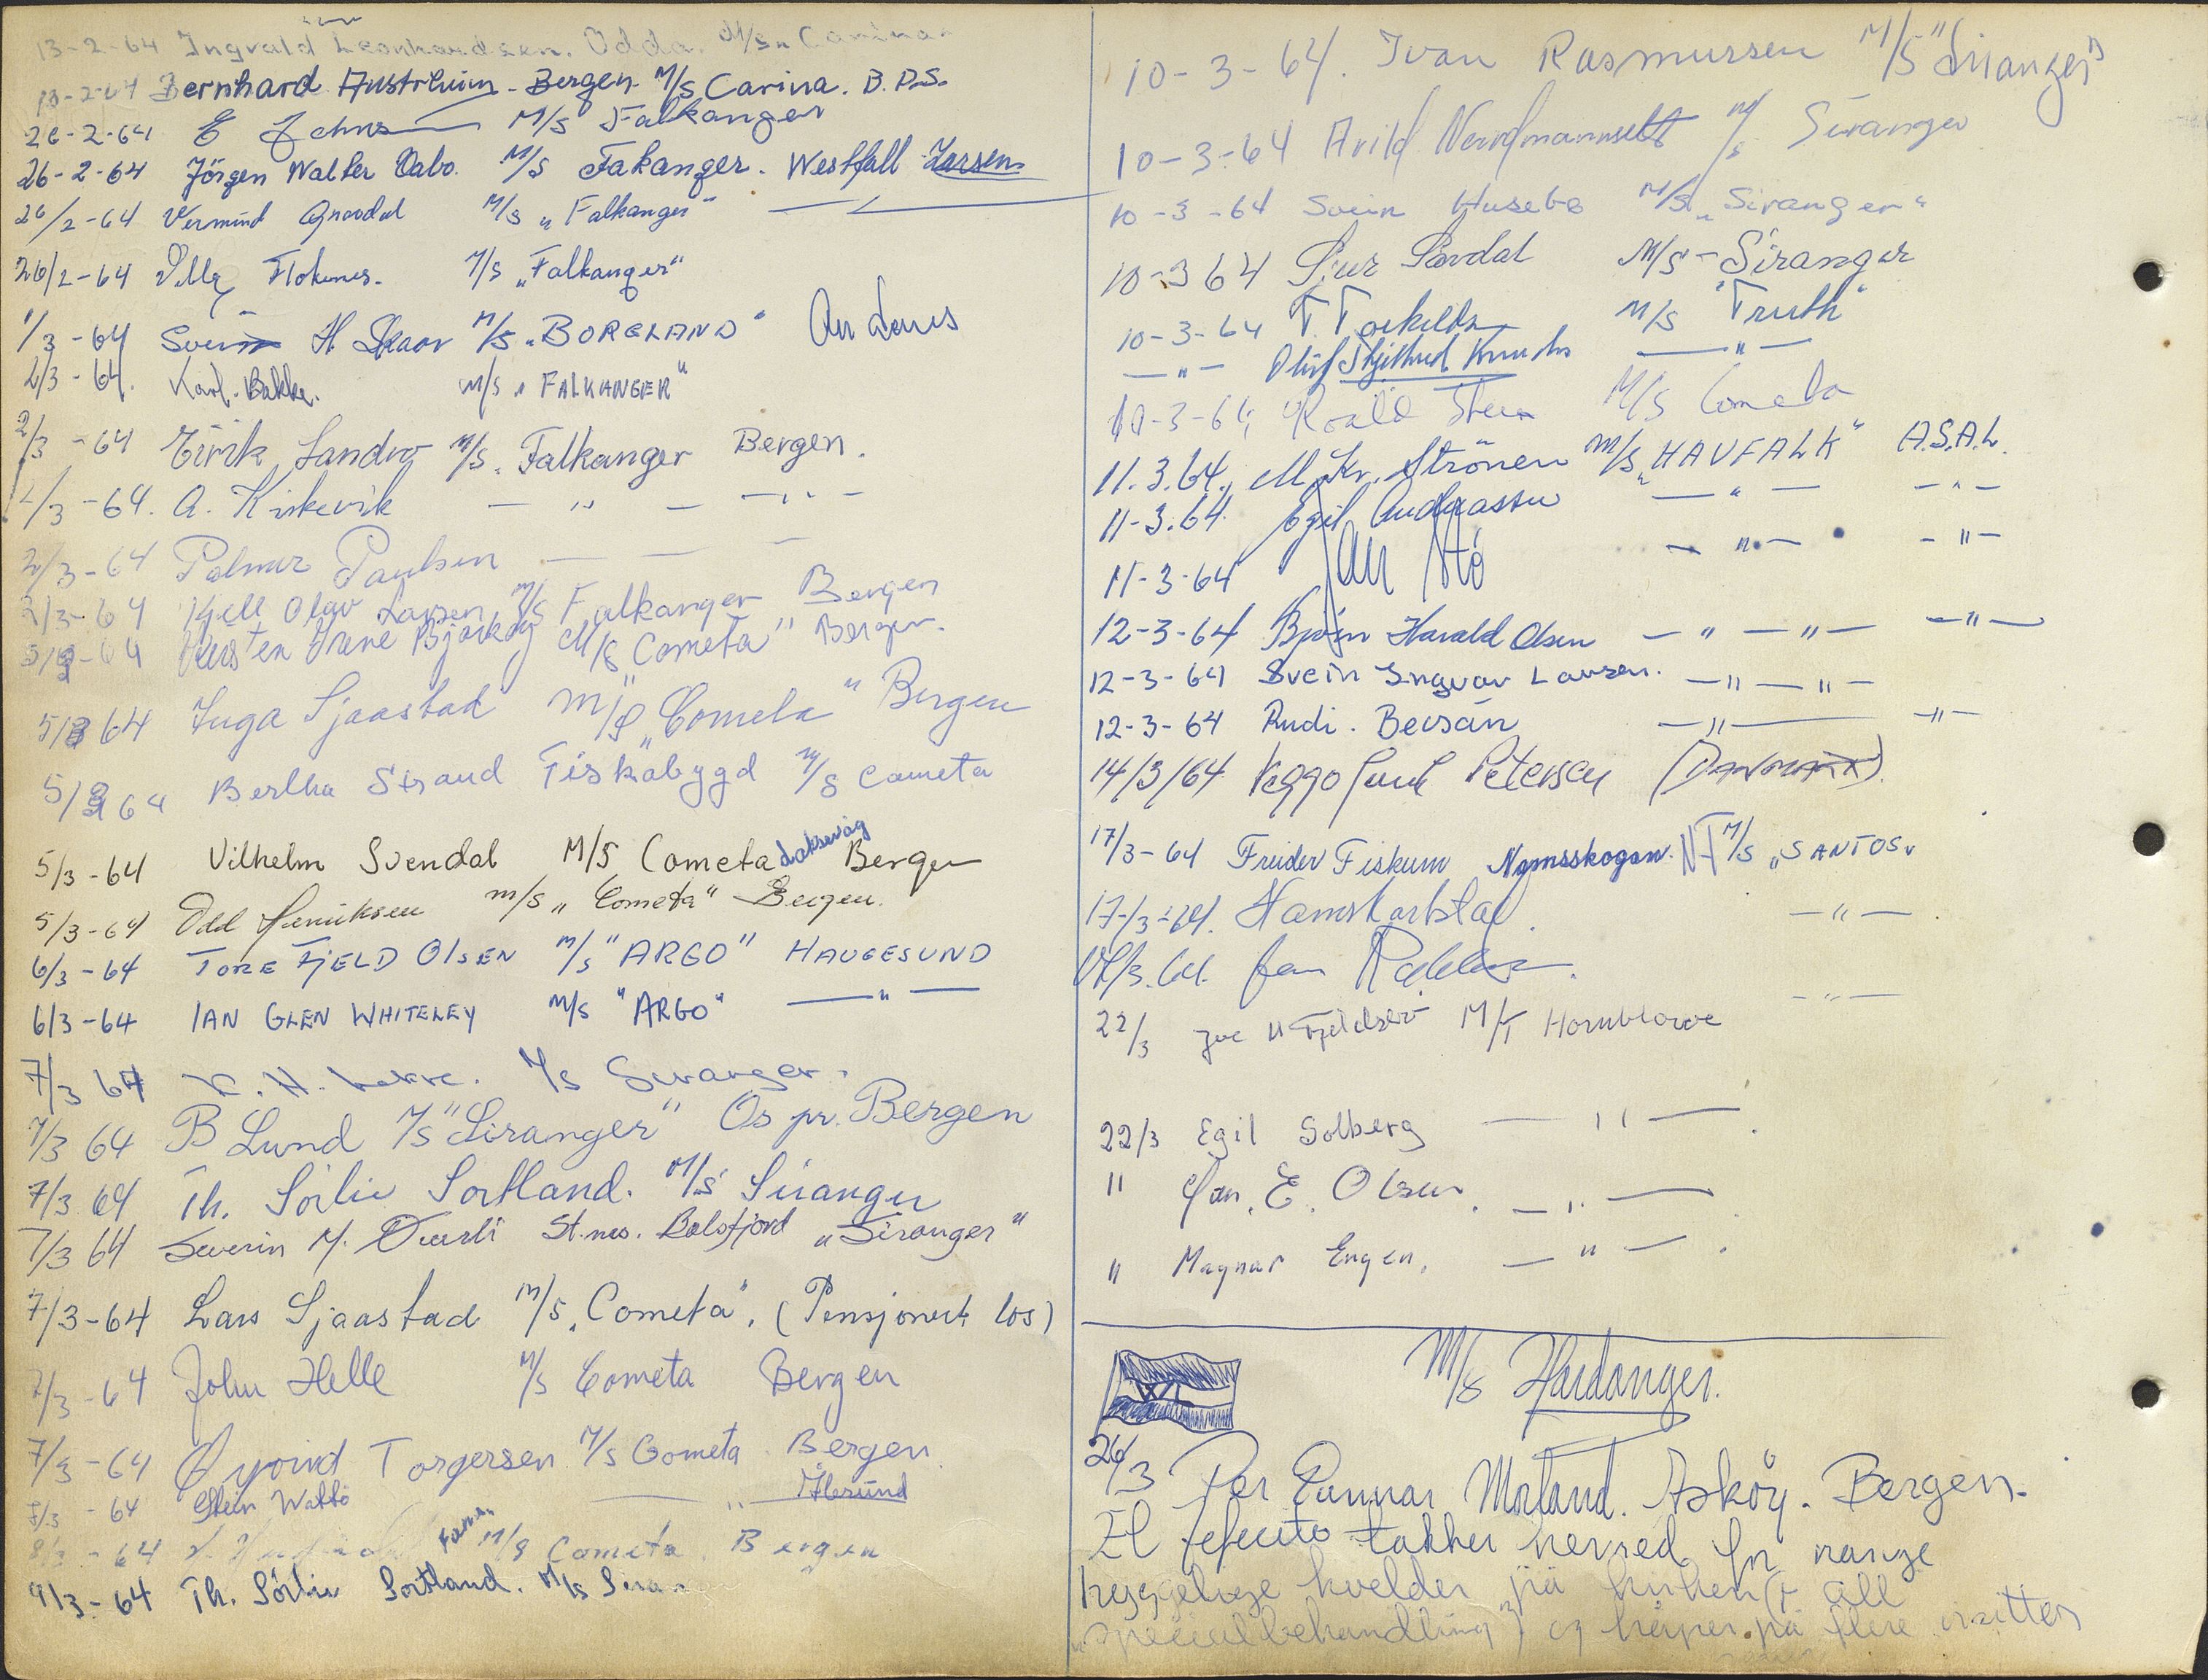 13-2-64 Ingvald Leonhardsen. Odda. M/S „Carina"
13-2-64 Bernhard Austrheim - Bergen. M/S Carina. B.D.S.
26-2-64 E M/S Falkanger
26-2-64 Jörgen Walter Dabo. M/S Fakanger. Westfall Larsen
26/2-64 Vermund M/S „Falkanger"
26/2-64 Flokenes. M/S „Falkanger"
1/3-64 Svein H Skaar M/S „BORGLAND"
2/3-64. Karl. Bakke. M/S „FALKANGER"
2/3-64 Eirik Landro M/S. Falkanger Bergen.
2/3-64. A. Kirkevik — " — — " —
2/3-64 Palmer Paulsen — — —
2/3-64 Kjell Olav Larsen, M/S Falkanger Bergen
5/3-64 Irene Bjorkøy M/S Cometa" Bergen.
5/3 64 Inga Sjaastad M/S „Cometa" Bergen
5/3 64 Bertha Strand Fiskåbygd M/S Cometa
5/3-64 Vilhelm Svendal M/S Cometa Laksevåg Bergen
5/3-64 Odd Henriksen M/S „Cometa" Bergen.
6/3-64 TORE FJELD OLSEN M/S "ARGO" HAUGESUND
6/3-64 IAN GLEN WHITELEY M/S "ARGO" — " —
7/3 64 K. H. M/S Siranger.
7/3 64 B Lund M/S "Siranger" Os pr. Bergen
7/3 64 Th. Sörlie Sortland. M/S Siranger
7/3 64 Severin M. St.nes. Balsfjord „Siranger"
7/3-64 Lars Sjaastad M/S „Cometa". (Pensjonert los)
7/3-64 John Helle M/S Cometa Bergen
7/3-64 Øyvind Torgersen M/S Cometa Bergen
7/3-64 Stein Wattö — " — Ålesund
8/3-64 M/S Cometa. Bergen
9/3-64 Th. Sörlie Sortland. M/S
10-3-64. Ivan Rasmussen M/S "Siranger"
10-3-64 Arild M/S Siranger
10-3-64 Svein Husebø M/S „Siranger"
10-3 64 Sjur M/S - Siranger
10-3-64 T. M/S "Truth"
— " — Oluf — " —
10-3-64 Roald M/S Cometa
11.3.64. M. Kr. Strönen M/S „HAVFALK" A.S.A.L.
11-3.64. Egil Andreassen — " — — " —
11-3-64 Jan Stö — " — — " —
12-3-64 Bjørn Harald Olsen — " — " — — " —
12-3-64 Svein Ingvar Larsen. — " — " —
12-3-64 Rudi. — " — — " —
14/3/64 Viggo Juul Petersen (DANMARK).
17/3-64 Fiskum Namsskogan. N.T M/S „SANTOS"
17/3-64. — " —
/3.64. Jan — " —
22/3 M/T Hornblower
22/3 Egil Solberg — " —
" Jan. E. Olsen. — " —
" Magnar Engen. — " —
M/S Hardanger.
26/3 Per Gunnar Morland. Askøy. Bergen.
El takker herved for mange
hyggelige kvelder på kirken (+ all
„specialbehandling") og håper på flere visitter